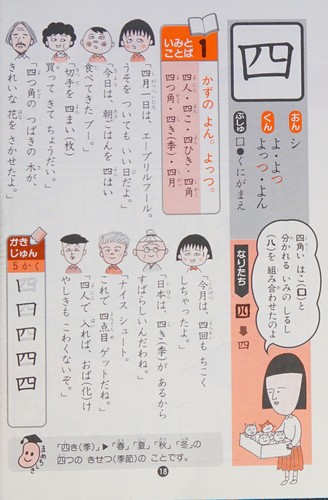 四
おん シ
くん よ・よっ
よっつ・よん
ぶしゅ 囗●くにがまえ
なりたち
四角い はこ(囗)と
分かれる いみの しるし
(八)を 組み合わせたのよ
1 いみと
ことば
かずの よん。よっつ。
四人・四こ・四ひき・四角
四つ角・四き(季)・四月
「四月一日は、エープリルフール。
うそを ついても いい日だよ。」
「今日は、朝ごはんを 四はい
食べてきた ブー。」
「切手を 四まい(枚)
買って きて ちょうだい。」
「四つ角の つばきの 木が、
きれいな 花を さかせたよ。」
「今月は、四回も ちこく
しちゃったよ。」
「日本は、四き(季)が あるから
すばらしいんだわね。」
「ナイス シュート。
これで 四点目 ゲットだね。」
「四人で 入れば、おば(化)け
やしきも こわくないぞ。」
かき
じゅん
5かく
「四き(季)」▶「春」「夏」「秋」「冬」の
四つの きせつ(季節)の ことです。
18